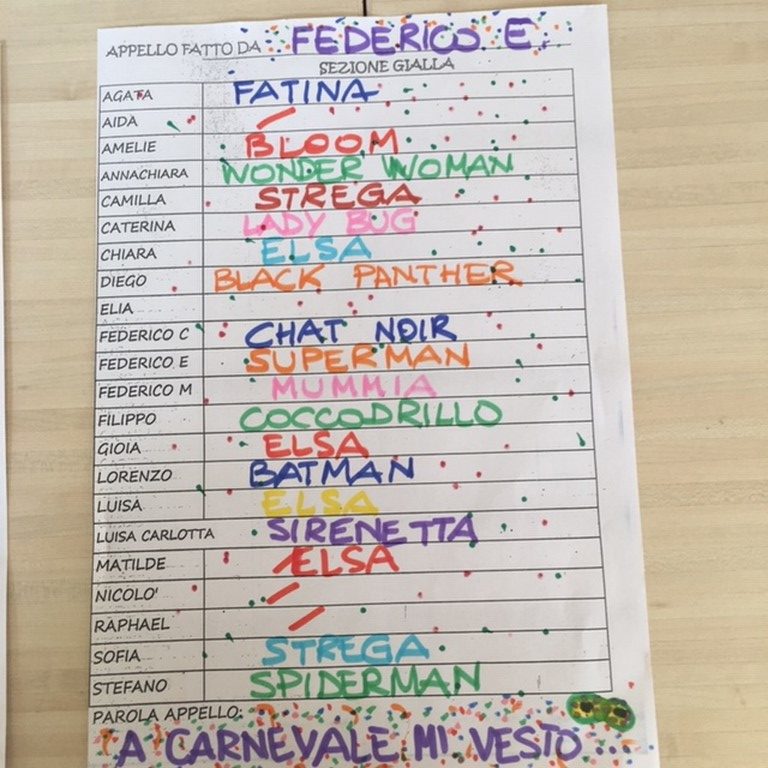 APPELLO FATTO DA FEDERICO E.
SEZIONE GIALLA
AGATA FATINA
AIDA /
AMELIE BLOOM
ANNACHIARA WONDER WOMAN
CAMILLA STREGA
CATERINA LADY BUG
CHIARA ELSA
DIEGO BLACK PANTHER
ELIA
FEDERICO C CHAT NOIR
FEDERICO E SUPERMAN
FEDERICO M MUMMIA
FILIPPO COCCODRILLO
GIOIA ELSA
LORENZO BATMAN
LUISA ELSA
LUISA CARLOTTA SIRENETTA
MATILDE ELSA
NICOLO' /
RAPHAEL /
SOFIA STREGA
STEFANO SPIDERMAN
PAROLA APPELLO:
A CARNEVALE MI VESTO...